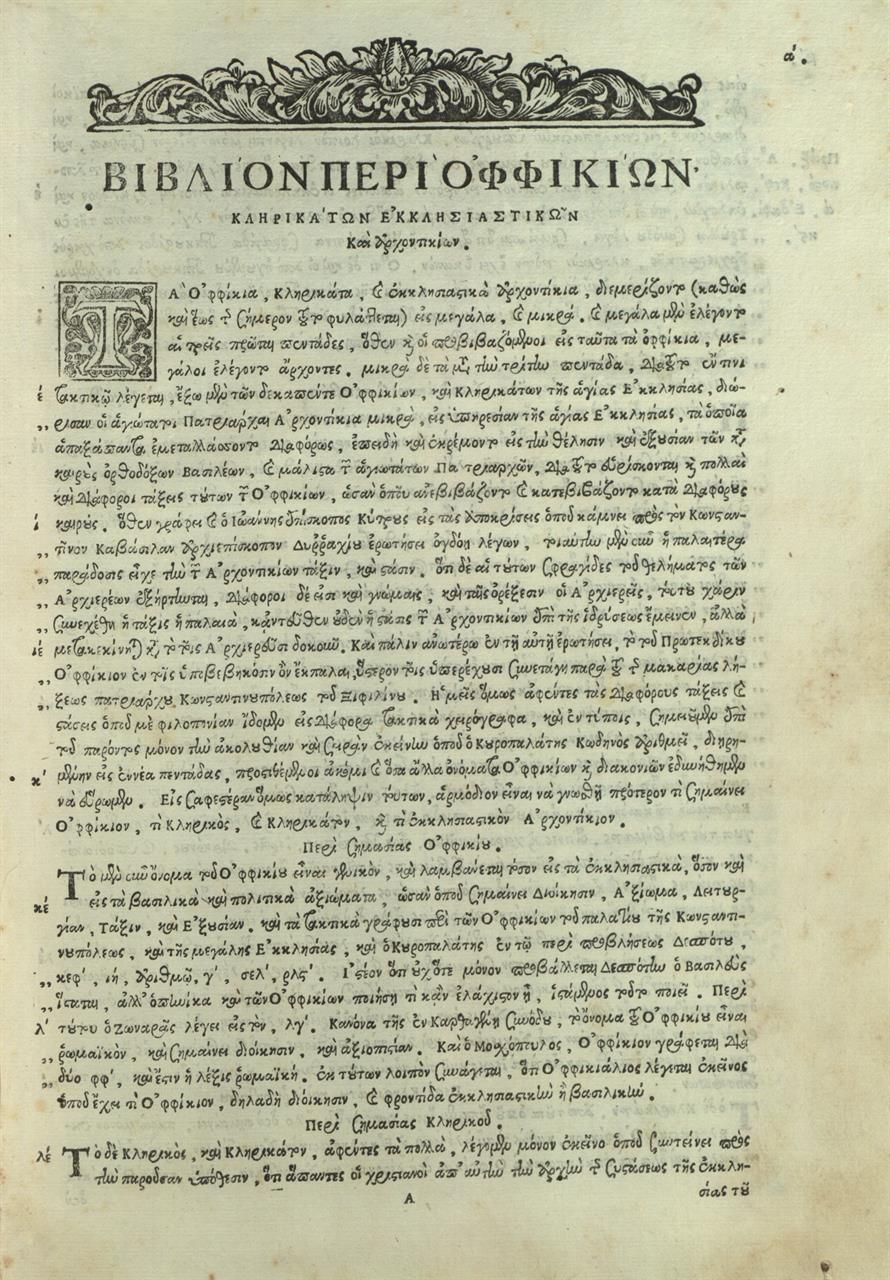 α΄.
ΒΙΒΛΙΌΝ ΠΕΡῚ ὈΦΦΙΚΙΏΝ·
ΚΛΗΡΙΚΆΤΩΝ ἘΚΚΛΗΣΙΑΣΤΙΚΩ͂Ν
Καὶ Ἀρχοντικίων.
ΤΑ Ὀφφίκια, Κληρικάτα, καὶ ἐκκλησιαστικὰ Ἀρχοντίκια, διεμερίζοντο (καθὼς
καὶ ἕως τὴν σήμερον τοῦτο φυλάττεται) εἰς μεγάλα, καὶ μικρά. καὶ μεγάλα μὲν ἐλέγοντο
αἱ τρεῖς πρῶται πεντάδες, ὅθεν καὶ οἱ προβιβαζόμενοι εἰς ταῦτα τὰ ὀφφίκια, με-
γάλοι ἐλέγοντο ἄρχοντες. μικρὰ δὲ τὰ μετὰ τὴν τρίτην πεντάδα, διὰ τοῦτο ἔν τινι
έ τακτικῷ λέγεται, ἔξω μὲν τῶν δεκαπέντε Ὀφφικίων, καὶ Κληρικάτων τῆς ἁγίας Ἐκκλησίας, διώ-
,, ρισαν οἱ ἁγιώτατοι Πατριάρχαι Ἀρχοντίκια μικρὰ, εἰς ὑπηρεσίαν τῆς ἁγίας Ἐκκλησίας, τὰ ὁποῖα
ἁπαξάπαντα ἐμεταλλάσσοντο διαφόρως, ἐπειδὴ καὶ ἐκρέμοντο εἰς τὴν θέλησιν καὶ ἐξουσίαν τῶν κατὰ
καιροὺς ὀρθοδόξων Βασιλέων, καὶ μάλιστα τῶν ἁγιωτάτων Πατριαρχῶν, διὰ τοῦτο εὑρίσκονται καὶ πολλαὶ
καὶ διάφοροι τάξεις τούτων τῶν Ὀφφικίων, ὡσὰν ὁποῦ ἀνεβιβάζοντο καὶ κατεβιβάζοντο κατὰ διαφόρους
ί καιρούς. ὅθεν γράφει καὶ ὁ Ἰωάννης ἐπίσκοπος Κύτρους εἰς τὰς ἀποκρίσεις ὁποῦ κάμνει πρὸς τὸν Κωνσταν-
,, τῖνον Καβάσιλαν ἀρχιεπίσκοπον Δυῤῥαχίου ἐρωτήσει ὀγδόῃ λέγων, τοιαύτην μὲν οὖν ἡ παλαιτέρα
,, παράδοσις εἶχε τὴν τῶν Ἀρχοντικίων τάξιν, καὶ στάσιν. ὅτι δὲ αἱ τούτων σφραγίδες τοῦ θελήματος τῶν
,, Ἀρχιερέων ἐξήρτηνται, διάφοροι δέ εἰσι καὶ γνώμαις, καὶ ταῖς ὀρέξεσιν οἱ Ἀρχιερεῖς, τούτου χάριν
,, συνεχέθη ἡ τάξις ἡ παλαιὰ, κἀντεῦθεν οὐδὲν ἡ στάσις τῶν Ἀρχοντικίων ἐπὶ τῆς ἱδρύσεως ἔμεινεν, ἀλλὰ
ιέ μετακεκίνηται κατὰ τὸ τοῖς Ἀρχιερεῦσι δοκοῦν. Καὶ πάλιν ἀνωτέρω ἐν τῇ αὐτῇ ἐρωτήσει, τὸ τοῦ Πρωτεκδίκου
,, Ὀφφίκιον ἐν τοῖς ὑποβεβηκόσιν ὂν ἔκπαλαι, ὕστερον τοῖς ὑπερέχουσι συνετάγη παρὰ τοῦ τῆς μακαρίας λή-
,, ξεως πατριάρχου Κωνσταντινουπόλεως τοῦ Ξιφιλίνου. Ἡμεῖς ὅμως ἀφέντες τὰς διαφόρους τάξεις καὶ
στάσεις ὁποῦ μὲ φιλοπονίαν ἴδομεν εἰς διάφορα τακτικὰ χειρόγραφα, καὶ ἐν τύποις, σημειοῦμεν ἐπὶ
τοῦ παρόντος μόνον τὴν ἀκολουθίαν καὶ σειρὰν ἐκείνην ὁποῦ ὁ Κυροπαλάτης Κωδηνὸς ἀριθμεῖ, διῃρη-
κ΄ μένην εἰς ἐννέα πεντάδας, προστιθέμενοι ἀκόμι καὶ ὅσα ἄλλα ὀνόματα Ὀφφικίων καὶ διακονιῶν ἐδυνήθημεν
νὰ εὕρωμεν. Εἰς σαφεστέραν ὅμως κατάληψιν τούτων, ἁρμόδιον εἶναι νὰ γνωσθῇ πρότερον τί σημαίνει
Ὀφφίκιον, τί Κληρικὸς, καὶ Κληρικάτον, καὶ τί ἐκκλησιαστικὸν Ἀρχοντίκιον.
Περὶ σημασίας Ὀφφικίου.
Τὸ μὲν οὖν ὄνομα τοῦ Ὀφφικίου εἶναι γενικὸν, καὶ λαμβάνεται τόσον εἰς τὰ ἐκκλησιαστικὰ, ὅσον καὶ
κέ εἰς τὰ βασιλικὰ καὶ πολιτικὰ ἀξιώματα, ὡσὰν ὁποῦ σημαίνει Διοίκησιν, Ἀξίωμα, Λειτουρ-
γίαν, Τάξιν, καὶ Ἐξουσίαν. καὶ τὰ τακτικὰ γράφουσι περὶ τῶν Ὀφφικίων τοῦ παλατίου τῆς Κωνσταντι-
νουπόλεως, καὶ τῆς μεγάλης Ἐκκλησίας, καὶ ὁ Κυροπαλάτης ἐν τῷ περὶ προβλήσεως Δεσπότου,
,, κεφ΄, ιή, ἀριθμῷ, γ΄, σελ΄, ρλς΄. Ἰστέον ὅτι οὐχ ὅτε μόνον προβάλλεται Δεσπότην ὁ Βασιλεὺς
,, ἵσταται, ἀλλ᾽ ὁπηνίκα καὶ τῶν Ὀφφικίων ποιήσῃ τὶ κᾂν ἐλάχιστον ᾖ, ἱστάμενος τοῦτο ποιεῖ. Περὶ
λ΄ τούτου ὁ Ζωναρᾶς λέγει εἰς τὸν, λγ΄. Κανόνα τῆς ἐν Καρθαγένῃ συνόδου, τὸ ὄνομα τοῦ Ὀφφικίου εἶναι
,, ῥωμαϊκὸν, καὶ σημαίνει διοίκησιν, καὶ ἀξιοπιστίαν. Καὶ ὁ Μοσχόπουλος, Ὀφφίκιον γράφεται διὰ
,, δύο φφ΄, καὶ ἔστιν ἡ λέξις ῥωμαϊκή. ἐκ τούτων λοιπὸν συνάγεται, ὅτι Ὀφφικιάλιος λέγεται ἐκεῖνος
ὁποῦ ἔχει τὶ Ὀφφίκιον, δηλαδὴ διοίκησιν, καὶ φροντίδα ἐκκλησιαστικὴν ἢ βασιλικήν.
Περὶ σημασίας Κληρικοῦ.
λέ Τὸ δὲ Κληρικὸς, καὶ Κληρικάτον, ἀφέντες τὰ πολλὰ, λέγομεν μόνον ἐκεῖνο ὁποῦ συντείνει πρὸς
τὴν παροῦσαν ὑπόθεσιν, ὅτι ἅπαντες οἱ χριστιανοὶ ἀπ᾽ αὐτὴν τὴν ἀρχὴν τῆς συστάσεως τῆς ἐκκλη-
Α
σίας τοῦ